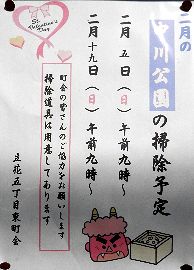 St. Valentine's Day
二月の
中川公園の掃除予定
二月五日(日)午前九時～
二月十九日(日)午前九時～
町会の皆さんのご協力をお願いします
掃除道具は用意してあります
立花五丁目東町会